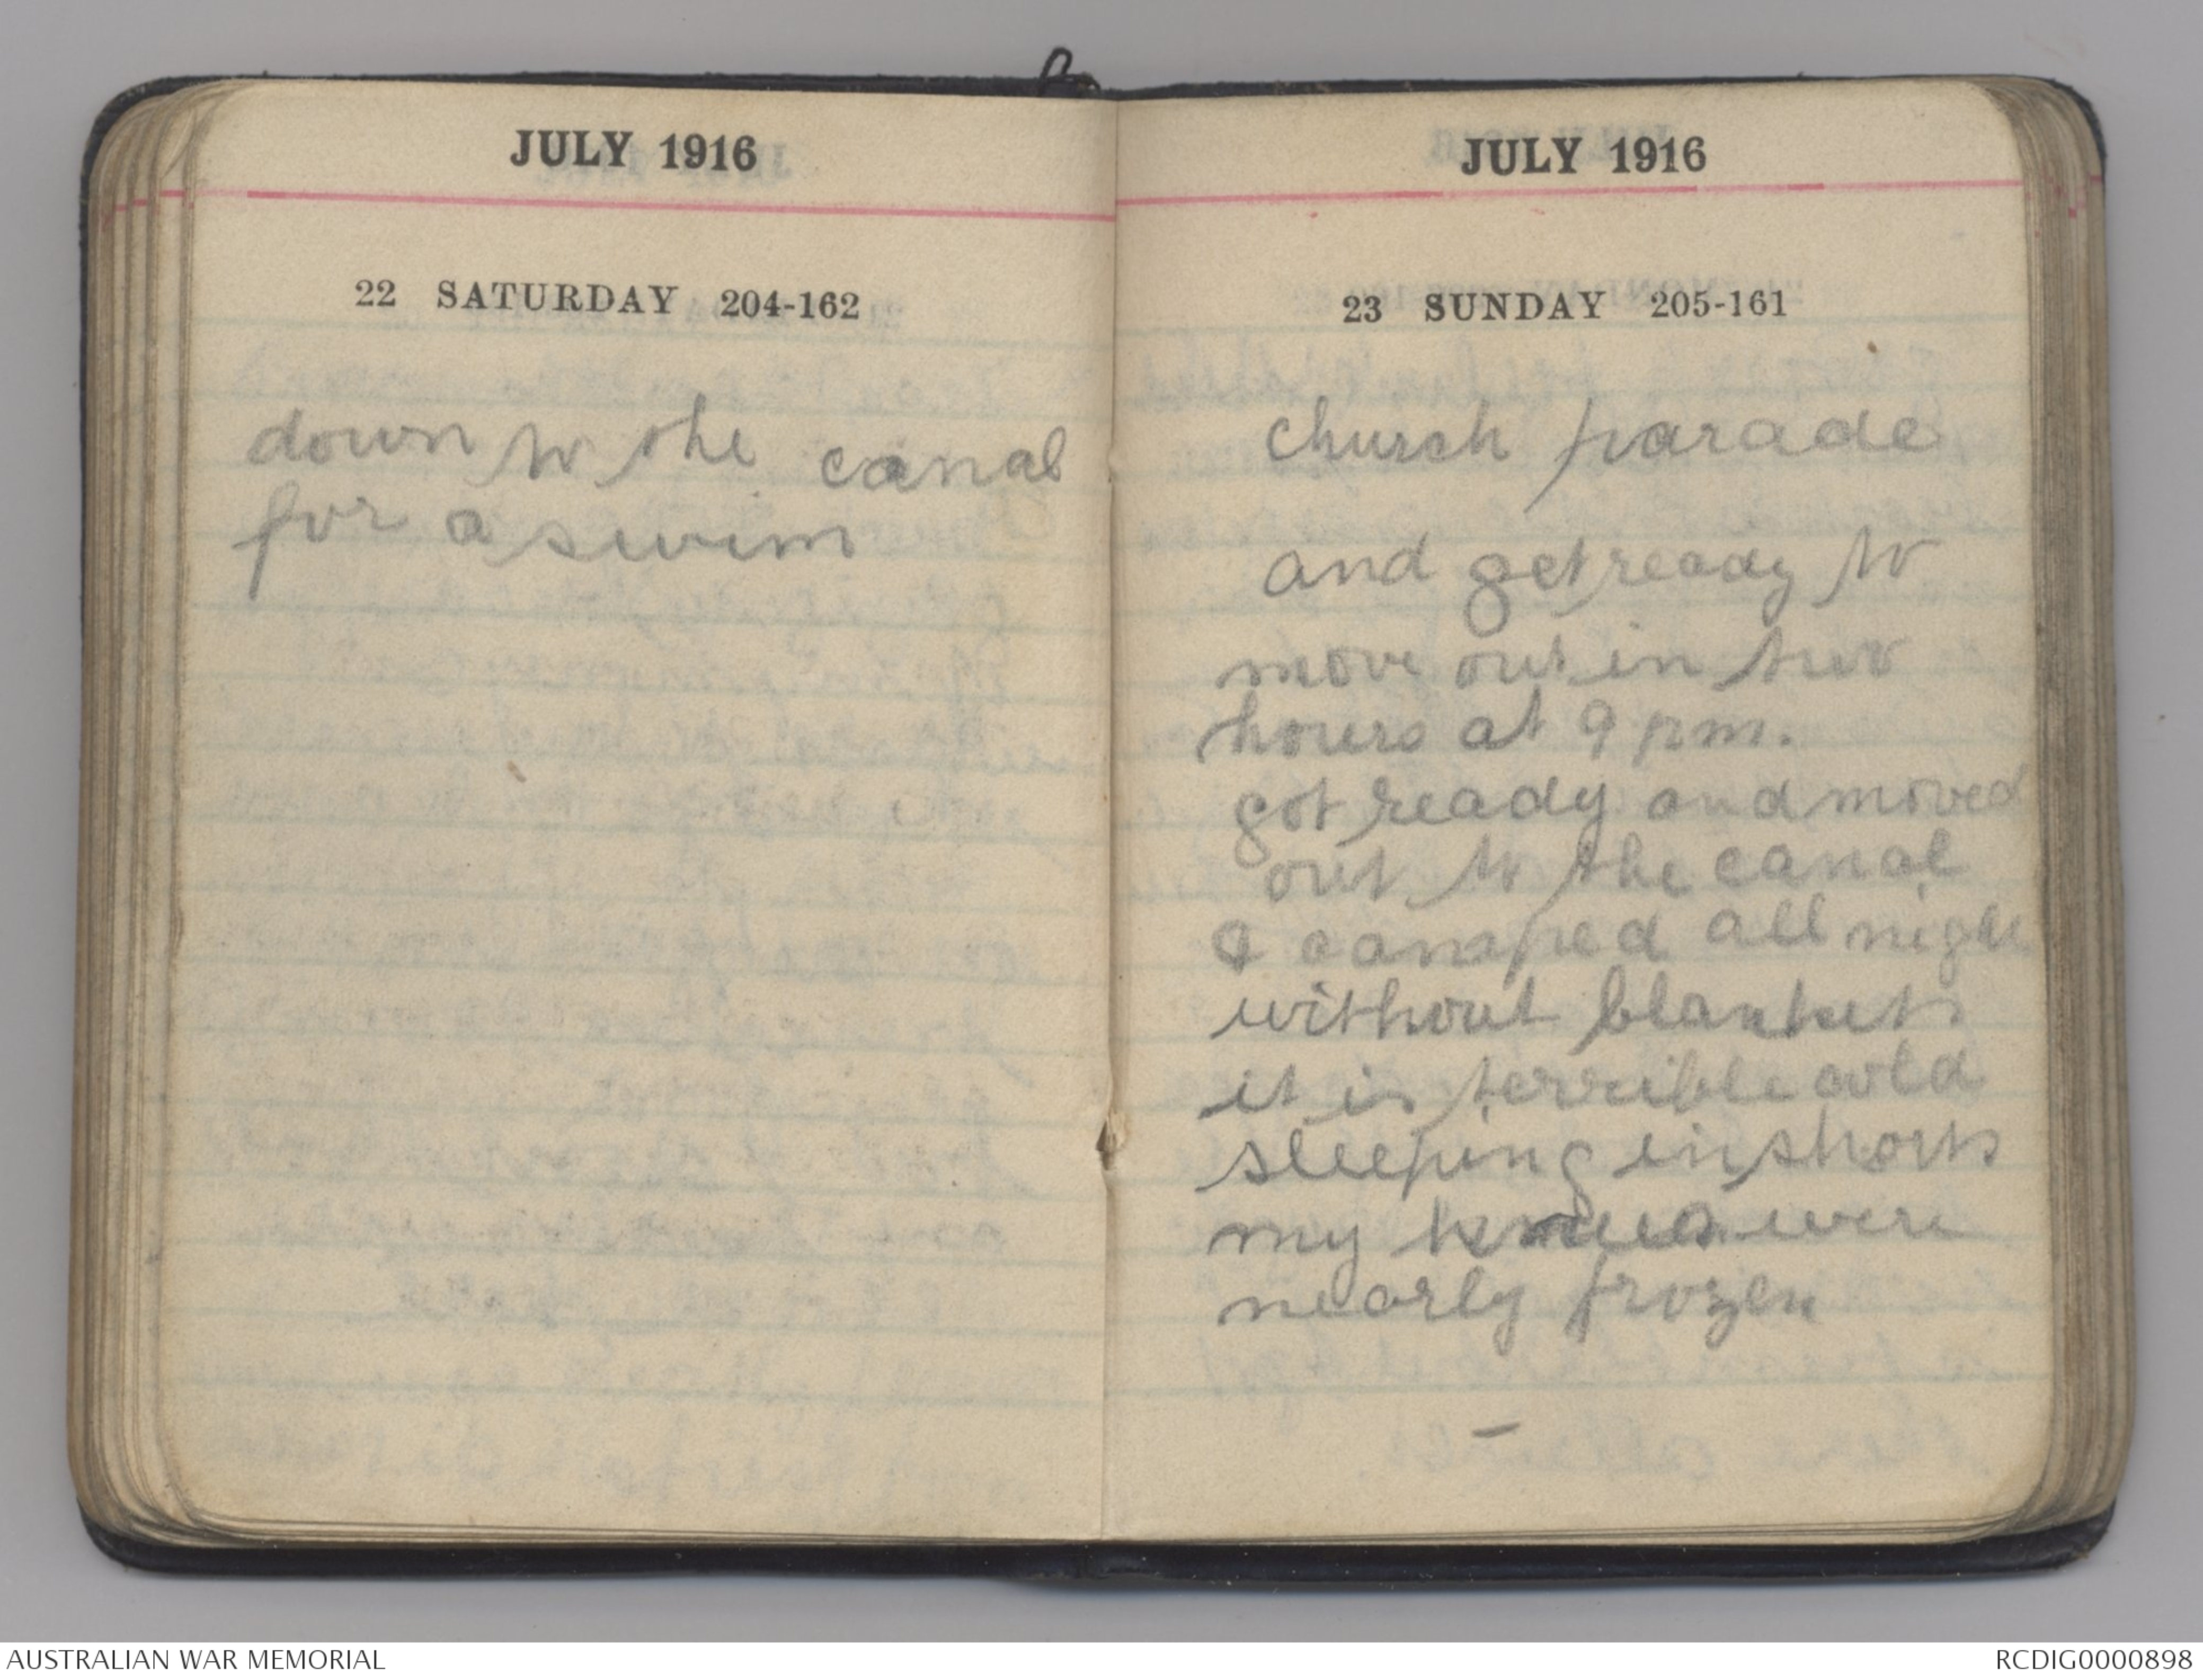 JULY 1916
22 SATURDAY 204-162
down to the canal
for a swim
JULY 1916
23 SUNDAY 205-161
church parade
and get ready to
move out in two
hours at 9 pm.
got ready and moved
out to the canal
& camped all night
without blankets
it is terrible cold
sleeping in shorts
my knees were
nearly frozen
AUSTRALIAN WAR MEMORIAL
RCDIG0000898